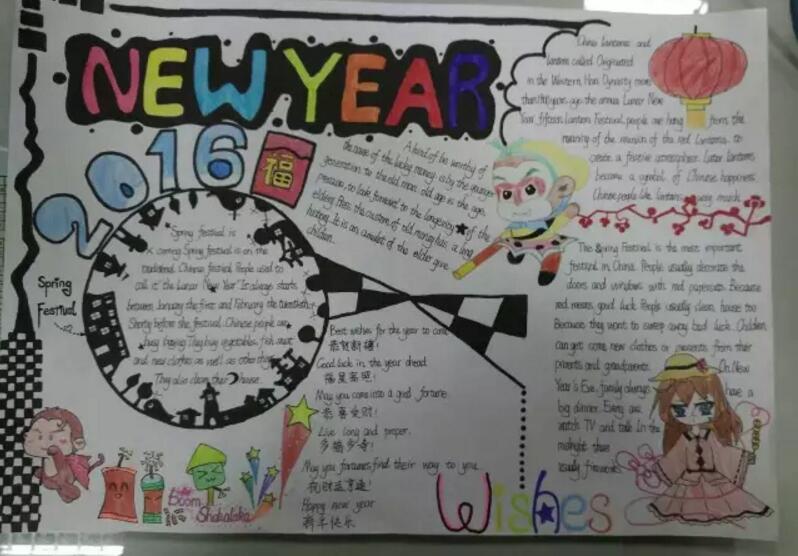 NEW YEAR
2016
福
China lanterns and
lantern called. Originated
in the Western Han Dynasty more
than 1800 years ago the annual Lunar New
Year fifteen Lantern Festival, people are hang
from the
meaning of the reunion of the red lanterns. to
create a festive atmosphere. Later lanterns
become a symbol of Chinese happiness.
Chinese people like lanterns very much.
A kind of be worthy of
the name of the lucky money is by the younger
generation to the old man, old age is the age
pressure, to look forward to the longevity of the
elding. Pass the custom of old money has a long
history. It is an amulet of the elder give
children.
Spring festival is
coming. Spring festival is on the
traditional Chinese festival. People used to
call it "the Lunar New Year". It always starts
between January the first and February the twentieth.
Shorty before the festival, Chinese people are
busy having. They buy vegetables, fish, meat
and new clothes as well as other
They also clean their house.
Spring
Festival
Best wishes for the year to come
恭贺新禧!
Good luck in the year ahead
福星高照!
May you come into a good fortune
恭喜发财!
Live long and proper.
多福多寿!
May you fortunes find their way to you
祝财运亨通!
Happy new year
新年快乐
The Spring Festival is the most important
festival in China. People usually decorate the
doors and windows with red papercuts. Because
red means good luck. People usually clean house too
Because they want to sweep away bad luck. Children
can get some new clothes or presents from their
parents and grandparents. On New
Year's Eve, family always have a
big dinner.
watch TV and talk In the
midnight there
usually fireworks.
Boom
Shakalaka
Wishes